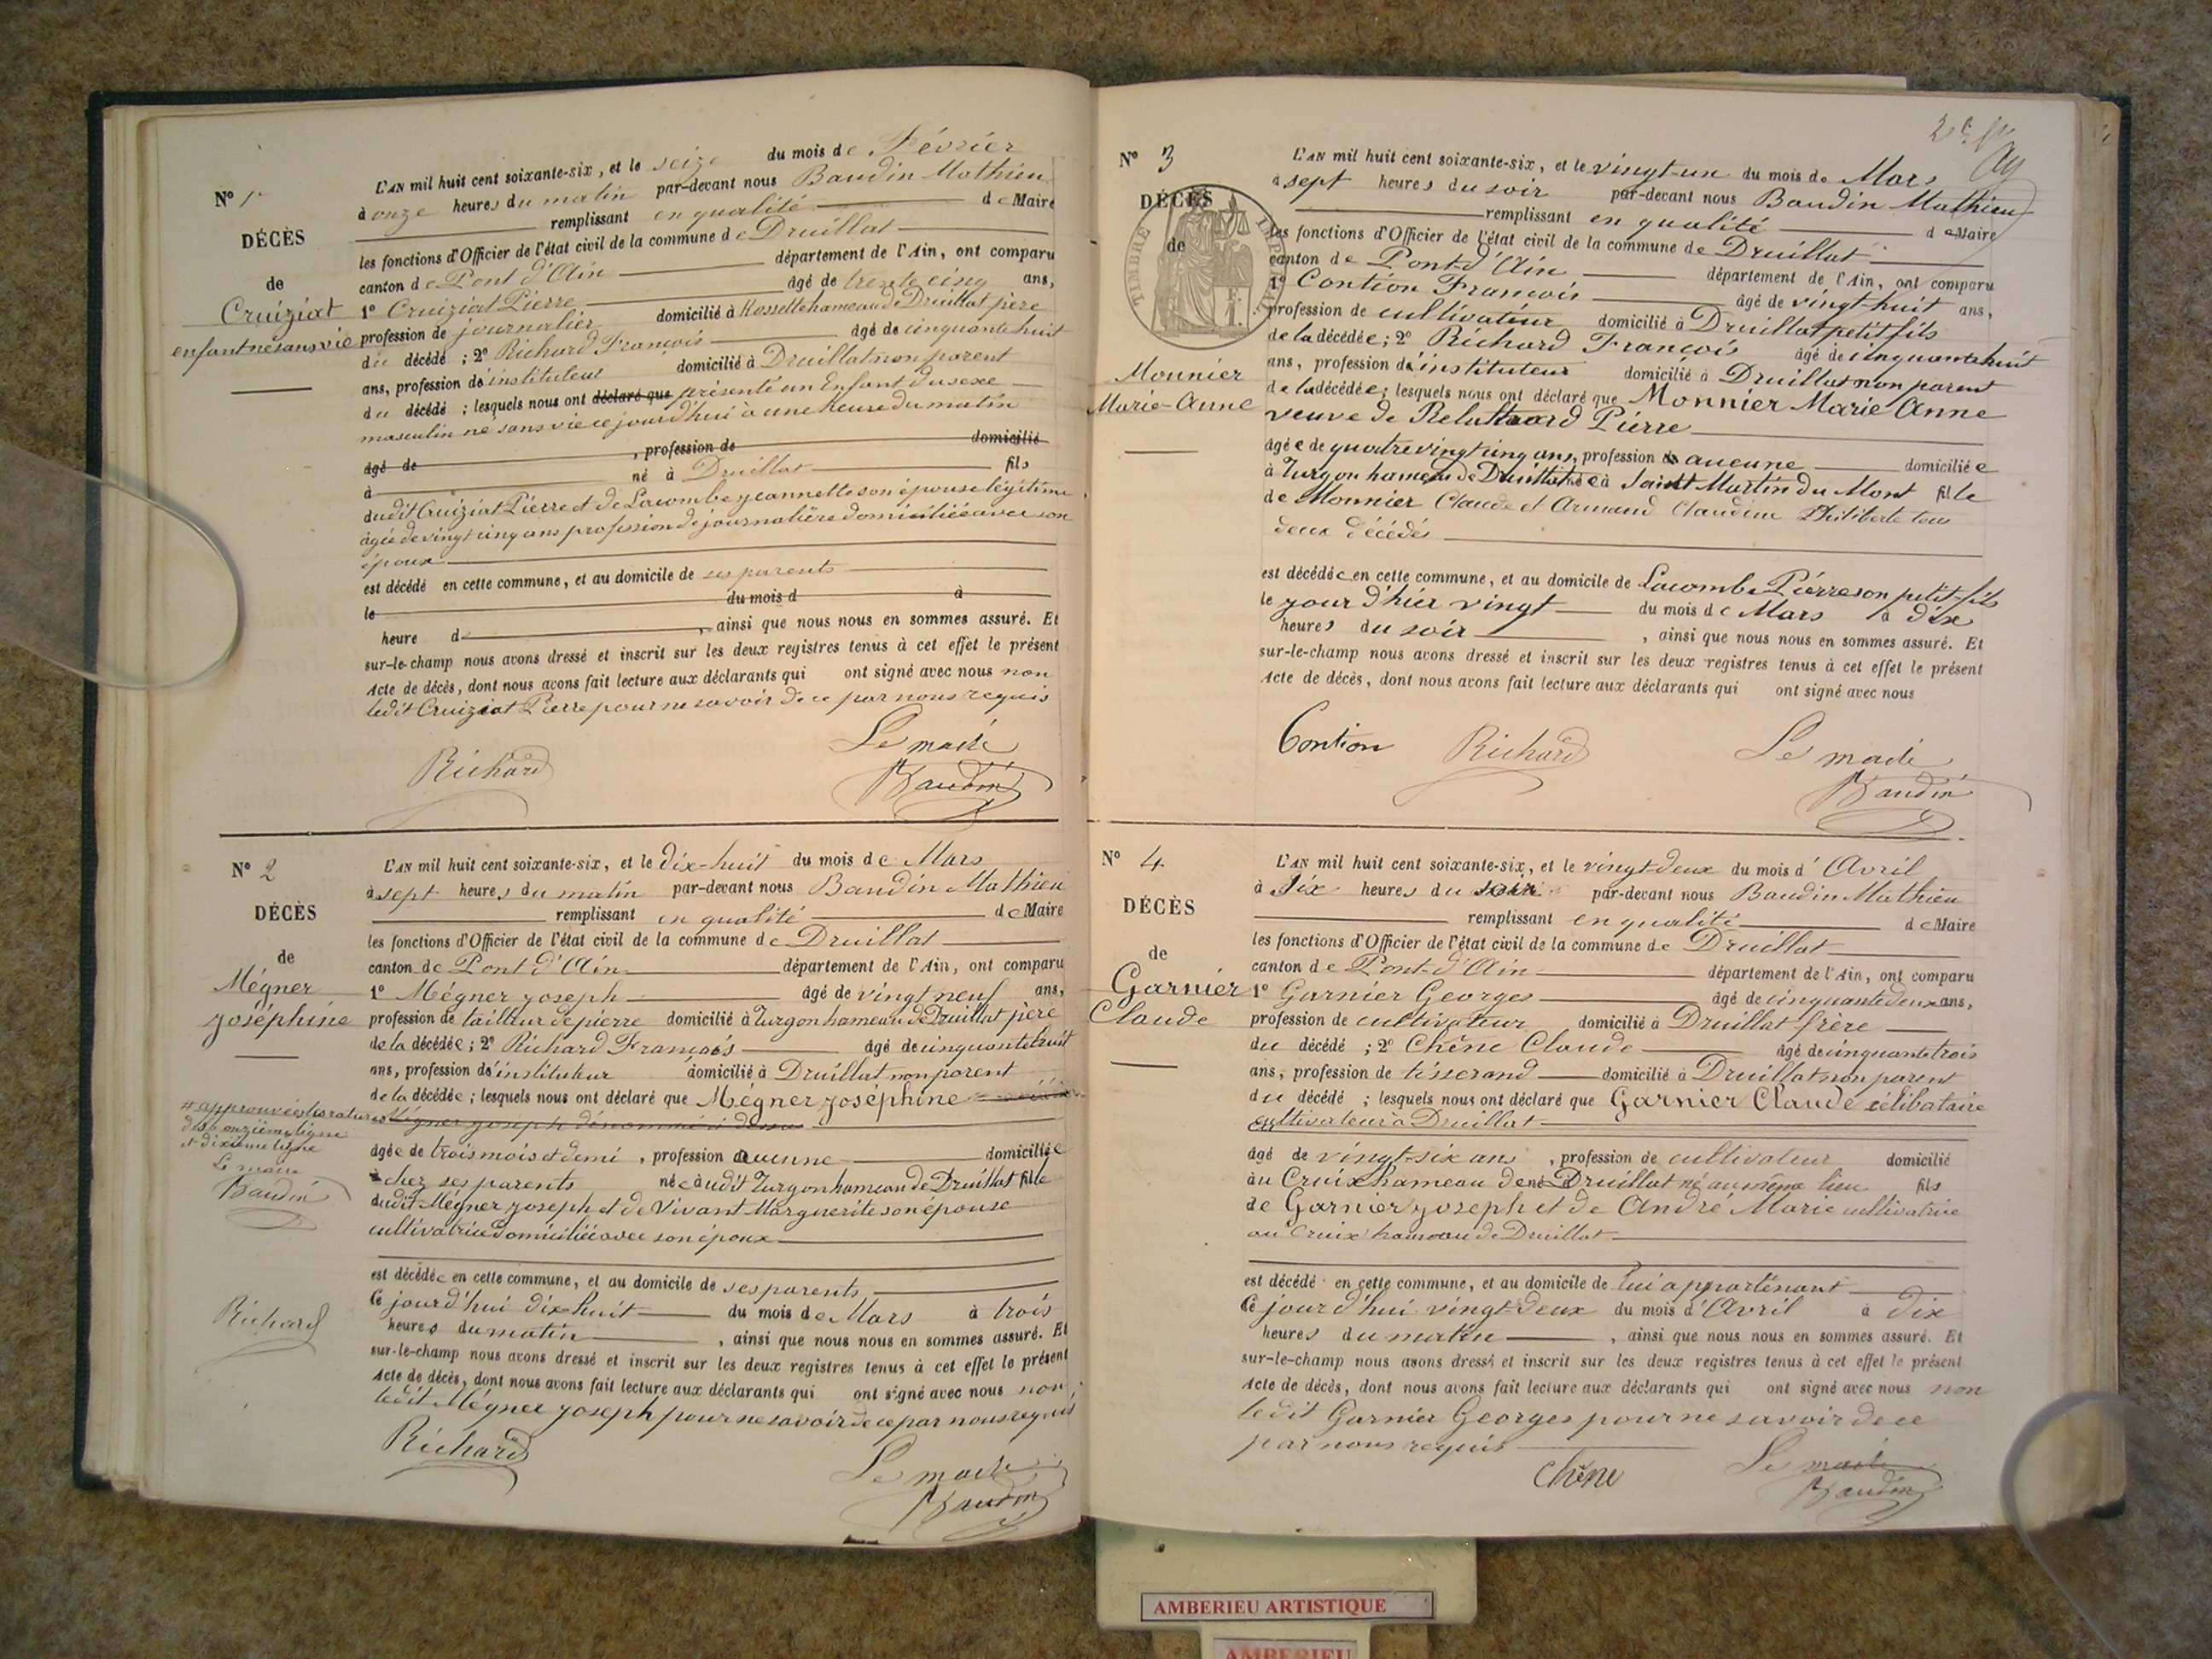 N° 1
DÉCÈS
de
Cruiziat
enfant né sans vie
L'AN mil huit cent soixante-six, et le seize du mois de Février
à onze heures du matin par-devant nous Baudin Mathieu
remplissant en qualité de Maire
les fonctions d'Officier de l'état civil de la commune de Druillat
canton de Pont d'Ain département de l'Ain, ont comparu
1° Cruiziat Pierre âgé de trente cinq ans,
profession de journalier domicilié à Rossette hameau de Druillat père
du décédé ; 2° Richard François âgé de cinquante huit
ans, profession d'instituteur domicilié à Druillat non parent
du décédé ; lesquels nous ont déclaré que présenté un Enfant du sexe
masculin né sans vie ce jourd'hui à une heure du matin
âgé de , profession de domicilié
à né à Druillat fils
dudit Cruiziat Pierre et de Lacombe Jeannette son épouse légitime
âgée de vingt cinq ans profession de journalière domiciliée avec son
époux
est décédé en cette commune, et au domicile de ses parents
le du mois d à
heure d , ainsi que nous nous en sommes assuré. Et
sur-le-champ nous avons dressé et inscrit sur les deux registres tenus à cet effet le présent
Acte de décès, dont nous avons fait lecture aux déclarants qui ont signé avec nous non
ledit Cruiziat Pierre pour ne savoir de ce par nous requis
Le maire
Richard Baudin
N° 2
DÉCÈS
de
Mégner
Joséphine
L'AN mil huit cent soixante-six, et le dix-huit du mois de Mars
à sept heures du matin par-devant nous Baudin Mathieu
remplissant en qualité de Maire
les fonctions d'Officier de l'état civil de la commune de Druillat
canton de Pont d'Ain département de l'Ain, ont comparu
1° Mégner Joseph âgé de vingt neuf ans,
profession de tailleur de pierre domicilié à Turgon hameau de Druillat père
de la décédée ; 2° Richard François âgé de cinquante huit
ans, profession d'instituteur domicilié à Druillat non parent
de la décédée ; lesquels nous ont déclaré que Mégner Joséphine
Mégner Joseph dénommé ci dessus
# approuvé les ratures
des onzième ligne
et dixième ligne
Le maire
Baudin
Richard
âgée de trois mois et demi , profession aucune domiciliée
chez ses parents née audit Turgon hameau de Druillat fille
dudit Mégner Joseph et de Vivant Marguerite son épouse
cultivatrice domiciliée avec son époux
est décédée en cette commune, et au domicile de ses parents
ce jourd'hui dix huit du mois de Mars à trois
heures du matin , ainsi que nous nous en sommes assuré. Et
sur-le-champ nous avons dressé et inscrit sur les deux registres tenus à cet effet le présent
Acte de décès, dont nous avons fait lecture aux déclarants qui ont signé avec nous non
ledit Mégner Joseph pour ne savoir de ce par nous requis
Richard Le maire
Baudin
2e
N° 3
DÉCÈS
de
TIMBRE IMPERIAL
Monnier
Marie-Anne
L'AN mil huit cent soixante-six, et le vingt-un du mois de Mars
à sept heures du soir par-devant nous Baudin Mathieu
remplissant en qualité de Maire
les fonctions d'Officier de l'état civil de la commune de Druillat
canton de Pont-d'Ain département de l'Ain, ont comparu
1° Contion François âgé de vingt-huit ans,
profession de cultivateur domicilié à Druillat petit fils
de la décédée ; 2° Richard François âgé de cinquante huit
ans, profession d'instituteur domicilié à Druillat non parent
de la décédée ; lesquels nous ont déclaré que Monnier Marie Anne
veuve de Pierre
âgée de quatre vingt cinq ans, profession aucune domiciliée
à Turgon hameau de Druillat née à Saint Martin du Mont fille
de Monnier Claude et Armand Claudine Philiberte tous
deux décédés
est décédée en cette commune, et au domicile de Lacombe Pierre son petit-fils
le jour d'hier vingt du mois de Mars à dix
heures du soir , ainsi que nous nous en sommes assuré. Et
sur-le-champ nous avons dressé et inscrit sur les deux registres tenus à cet effet le présent
Acte de décès, dont nous avons fait lecture aux déclarants qui ont signé avec nous
Contion Richard Le maire
Baudin
N° 4
DÉCÈS
de
Garnier
Claude
L'AN mil huit cent soixante-six, et le vingt-deux du mois d'Avril
à six heures du soir par-devant nous Baudin Mathieu
remplissant en qualité de Maire
les fonctions d'Officier de l'état civil de la commune de Druillat
canton de Pont-d'Ain département de l'Ain, ont comparu
1° Garnier Georges âgé de cinquante deux ans,
profession de cultivateur domicilié à Druillat frère
du décédé ; 2° Chêne Claude âgé de cinquante trois
ans, profession de tisserand domicilié à Druillat non parent
du décédé ; lesquels nous ont déclaré que Garnier Claude célibataire
cultivateur à Druillat
âgé de vingt-six ans , profession de cultivateur domicilié
au Cruix hameau de Druillat né au même lieu fils
de Garnier Joseph et de André Marie cultivatrice
au Cruix hameau de Druillat
est décédé en cette commune, et au domicile de lui appartenant
ce jourd'hui vingt deux du mois d'Avril à dix
heures du matin , ainsi que nous nous en sommes assuré. Et
sur-le-champ nous avons dressé et inscrit sur les deux registres tenus à cet effet le présent
Acte de décès, dont nous avons fait lecture aux déclarants qui ont signé avec nous non
ledit Garnier Georges pour ne savoir de ce
par nous requis
Chêne Le maire
Baudin
AMBERIEU ARTISTIQUE
AMBERIEU